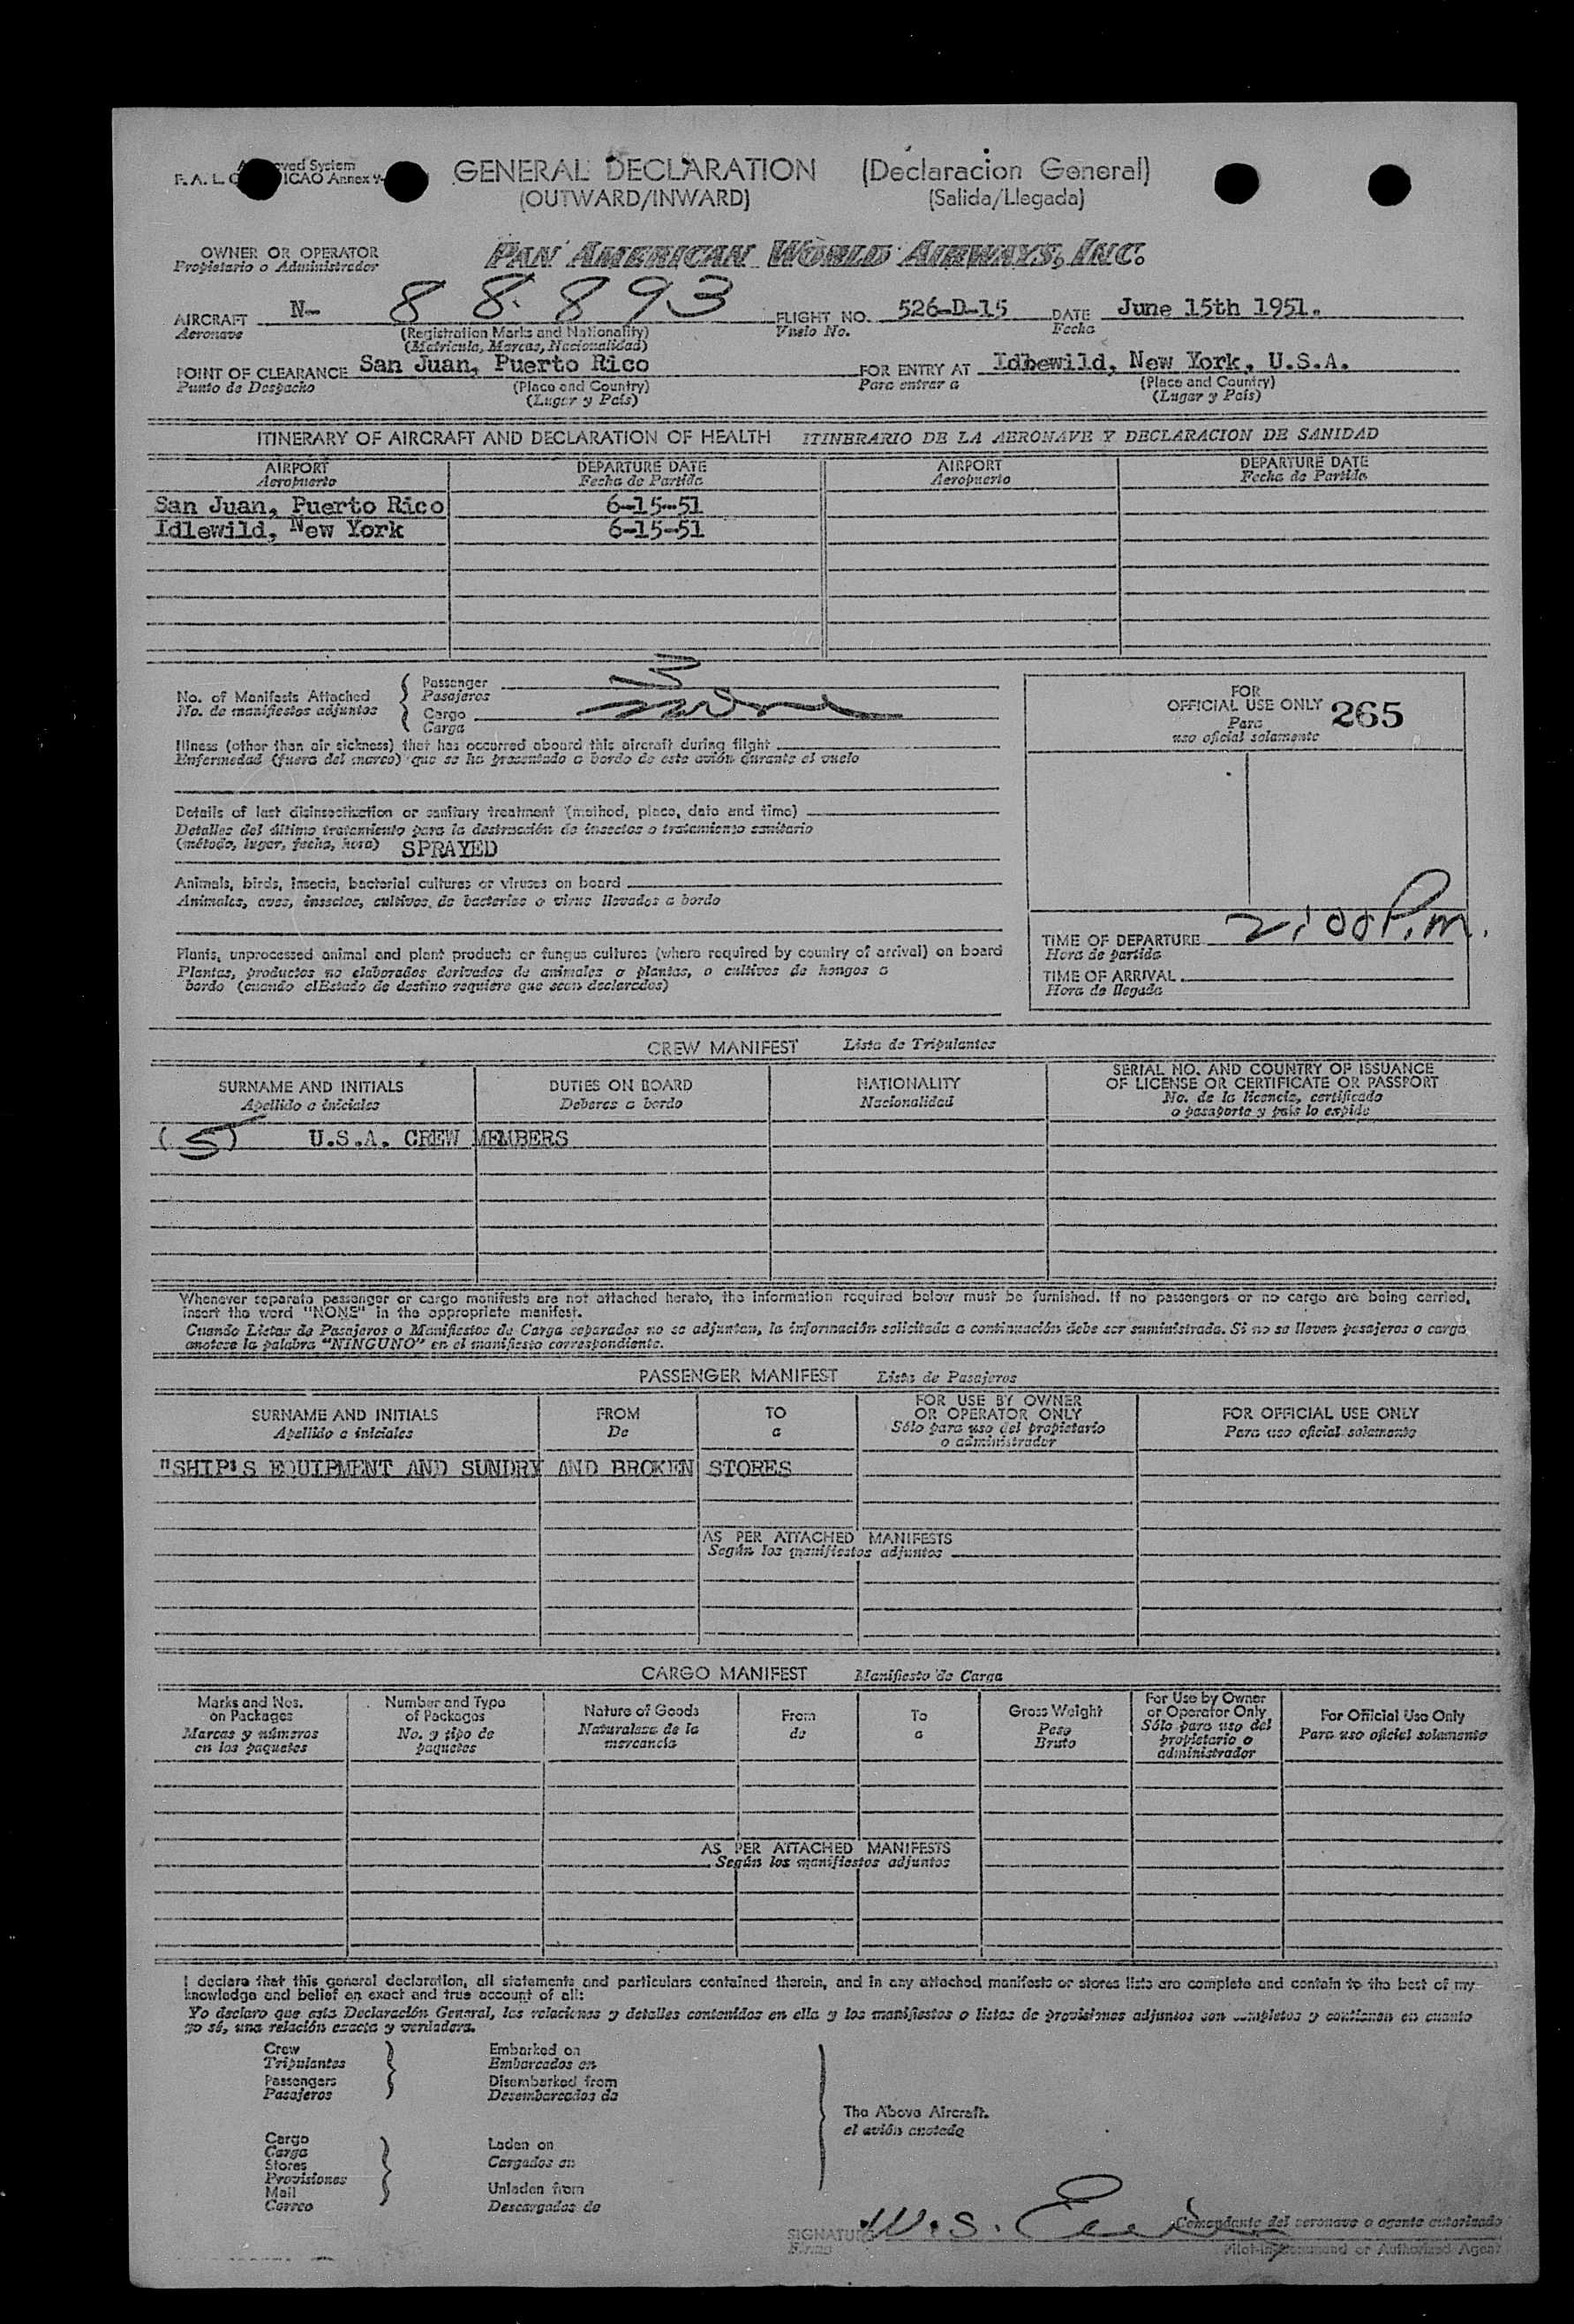 Approved System
F. A. L. ICAO Annex 9
GENERAL DECLARATION (Declaracion General)
(OUTWARD/INWARD) (Salida/Llegada)
OWNER OR OPERATOR PAN AMERICAN WORLD AIRWAYS, INC.
Propietario o Administrador
AIRCRAFT N- 88893 FLIGHT NO. 526-D-15 DATE June 15th 1951.
Aeronave (Registration Marks and Nationality) Vuelo No. Fecha
(Matricula, Marcas, Nacionalidad)
POINT OF CLEARANCE San Juan, Puerto Rico FOR ENTRY AT Idbewild, New York, U.S.A.
Punto de Despacho (Place and Country) Para entrar a (Place and Country)
(Lugar y Pais) (Lugar y Pais)
ITINERARY OF AIRCRAFT AND DECLARATION OF HEALTH ITINERARIO DE LA AERONAVE Y DECLARACION DE SANIDAD
AIRPORT DEPARTURE DATE AIRPORT DEPARTURE DATE
Aeropuerto Fecha de Partida Aeropuerto Fecha de Partida
San Juan, Puerto Rico 6-15-51
Idlewild, New York 6-15-51
No. of Manifests Attached Passenger 3
No. de manifiestos adjuntos Pasajeros
Cargo
Carga
FOR
OFFICIAL USE ONLY 265
Para
uso oficial solamente
Illness (other than air sickness) that has occurred aboard this aircraft during flight
Enfermedad (fuera del mareo) que se ha presentado a bordo de este avión durante el vuelo
Details of last disinsectization or sanitary treatment (method, place, date and time)
Detalles del último tratamiento para la destrucción de insectos o tratamiento sanitario
(método, lugar, fecha, hora) SPRAYED
Animals, birds, insects, bacterial cultures or viruses on board
Animales, aves, insectos, cultivos de bacterias o virus llevados a bordo
Plants, unprocessed animal and plant products or fungus cultures (where required by country of arrival) on board
Plantas, productos no elaborados derivados de animales o plantas, o cultivos de hongos a
bordo (cuando el Estado de destino requiere que sean declarados)
TIME OF DEPARTURE 2:00 P.m.
Hora de partida
TIME OF ARRIVAL
Hora de llegada
CREW MANIFEST Lista de Tripulantes
SURNAME AND INITIALS DUTIES ON BOARD NATIONALITY SERIAL NO. AND COUNTRY OF ISSUANCE
OF LICENSE OR CERTIFICATE OR PASSPORT
Apellido e iniciales Deberes a bordo Nacionalidad No. de la licencia, certificado
o pasaporte y país lo expide
(5) U.S.A. CREW MEMBERS
Whenever separate passenger or cargo manifests are not attached hereto, the information required below must be furnished. If no passengers or no cargo are being carried,
insert the word "NONE" in the appropriate manifest.
Cuando Listas de Pasajeros o Manifiestos de Carga separados no se adjuntan, la información solicitada a continuación debe ser suministrada. Si no se lleven pasajeros o carga
anotese la palabra "NINGUNO" en el manifiesto correspondiente.
PASSENGER MANIFEST Lista de Pasajeros
SURNAME AND INITIALS FROM TO FOR USE BY OWNER
OR OPERATOR ONLY FOR OFFICIAL USE ONLY
Apellido e iniciales De a Sólo para uso del propietario
o administrador Para uso oficial solamente
"SHIP'S EQUIPMENT AND SUNDRY AND BROKEN STORES
AS PER ATTACHED MANIFESTS
Según los manifiestos adjuntos
CARGO MANIFEST Manifiesto de Carga
Marks and Nos.
on Packages
Marcas y números
en los paquetes
Number and Type
of Packages
No. y tipo de
paquetes
Nature of Goods
Naturaleza de la
mercancía
From
de
To
a
Gross Weight
Peso
Bruto
For Use by Owner
or Operator Only
Sólo para uso del
propietario o
administrador
For Official Use Only
Para uso oficial solamente
AS PER ATTACHED MANIFESTS
Según los manifiestos adjuntos
I declare that this general declaration, all statements and particulars contained therein, and in any attached manifests or stores lists are complete and contain to the best of my
knowledge and belief an exact and true account of all:
Yo declaro que esta Declaración General, las relaciones y detalles contenidos en ella y los manifiestos o listas de provisiones adjuntos son completos y contienen en cuanto
yo sé, una relación exacta y verdadera.
Crew
Tripulantes
Passengers
Pasajeros
Embarked on
Embarcados en
Disembarked from
Desembarcados de
Cargo
Carga
Stores
Provisiones
Mail
Correo
Laden on
Cargados en
Unladen from
Descargados de
The Above Aircraft.
el avión anotado
SIGNATURE W. S. Comandante del aeronave o agente autorizado
Firma Pilot-in-Command or Authorized Agent